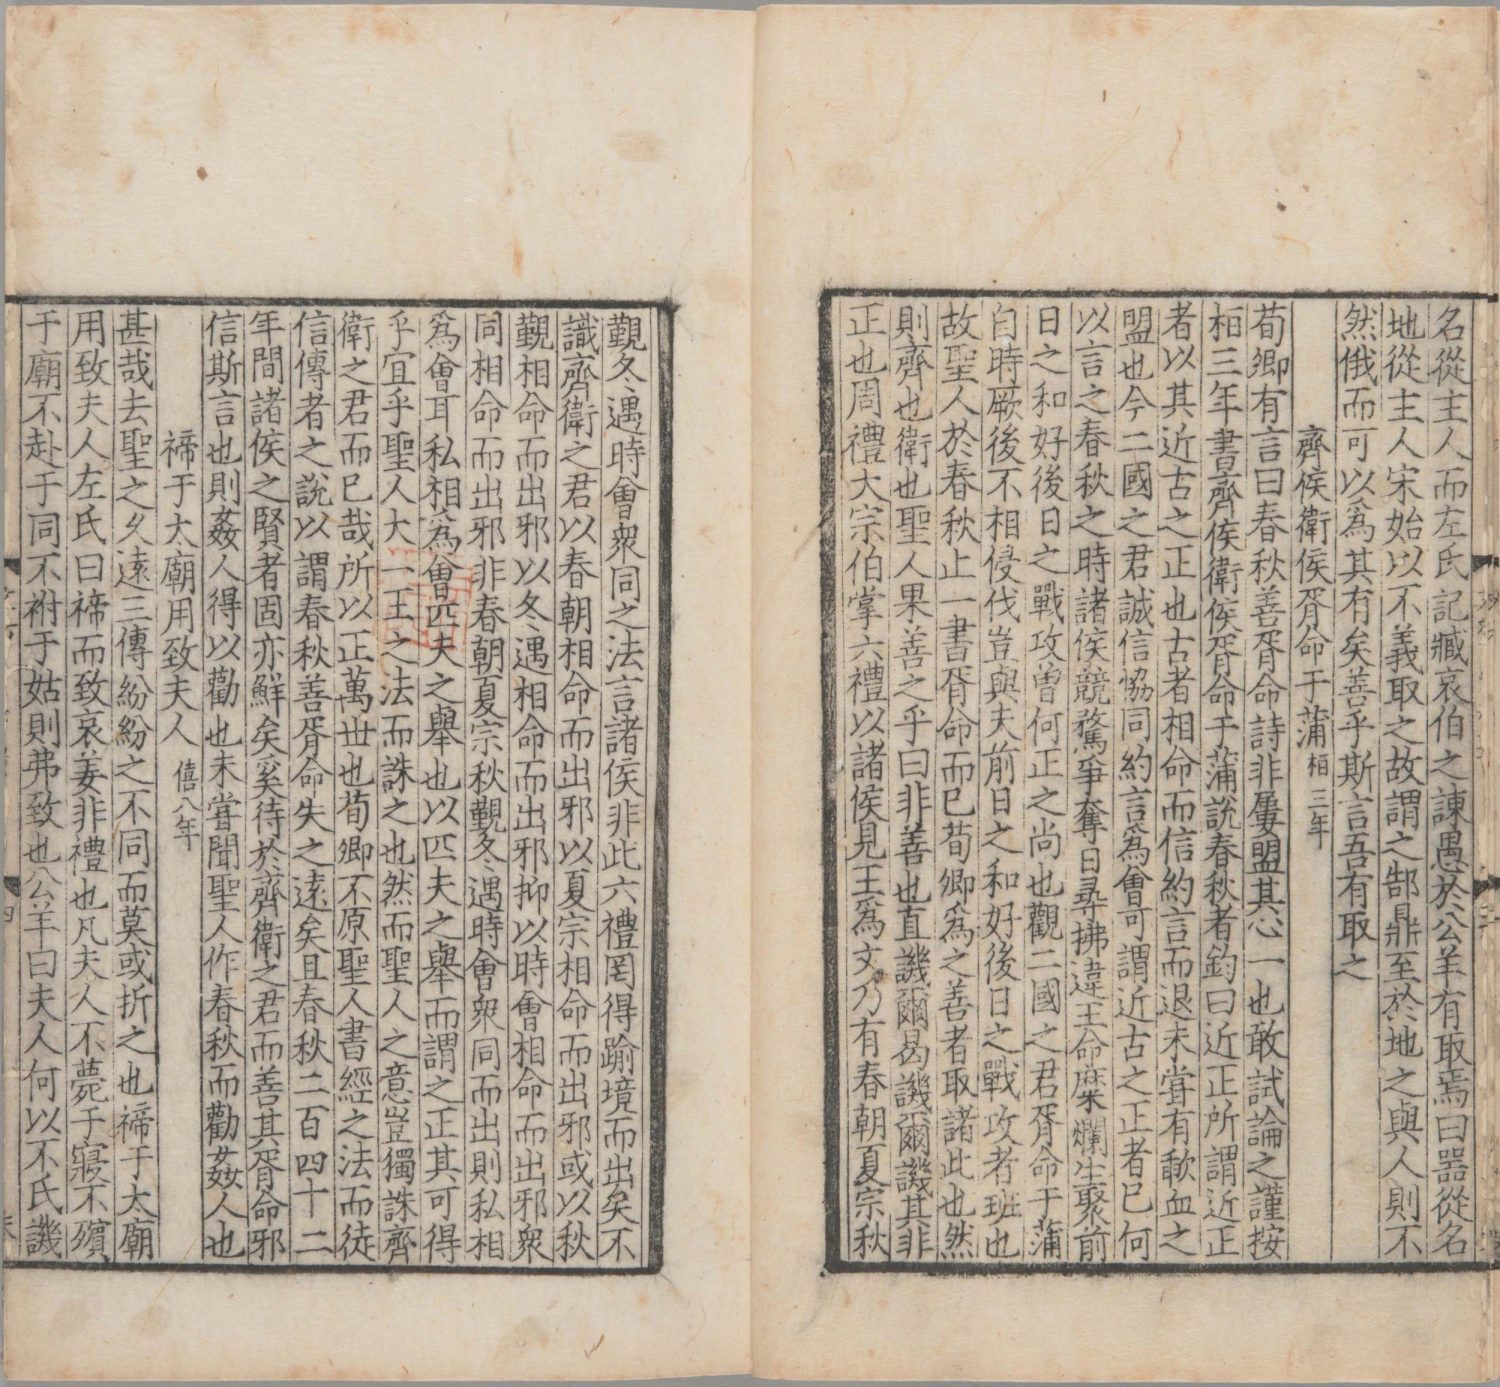 名從主人而左氏記臧哀伯之諫愚於公羊有取焉曰器從名
地從主人宋始以不義取之故謂之郜鼎至於地之與人則不
然俄而可以爲其有矣善乎斯言吾有取之
齊侯衛侯胥命于蒲桓三年
荀卿有言曰春秋善胥命詩非屢盟其心一也敢試論之謹按
桓三年書齊侯衛侯胥命于蒲說春秋者鈞曰近正所謂近正
者以其近古之正也古者相命而信約言而退未甞有歃血之
盟也今二國之君誠信恊同約言爲會可謂近古之正者已何
以言之春秋之時諸侯競騖爭奪日尋拂違王命糜爛生聚前
日之和好後日之戰攻曽何正之尚也觀二國之君胥命于蒲
自時厥後不相侵伐豈與夫前日之和好後日之戰攻者班也
故聖人於春秋止一書胥命而已荀卿爲之善者取諸此也然
則齊也衛也聖人果善之乎曰非善也直譏爾曷譏爾譏其非
正也周禮大宗伯掌六禮以諸侯見王爲文乃有春朝夏宗秋
覲冬遇時會衆同之法言諸侯非此六禮罔得踰境而出矣不
識齊衛之君以春朝相命而出邪以夏宗相命而出邪或以秋
覲相命而出邪以冬遇相命而出邪抑以時會相命而出邪衆
同相命而出邪非春朝夏宗秋覲冬遇時會衆同而出則私相
爲會耳私相爲會匹夫之舉也以匹夫之舉而謂之正其可得
乎宜乎聖人大一王之法而誅之也然而聖人之意豈獨誅齊
衛之君而已哉所以正萬世也荀卿不原聖人書經之法而徒
信傳者之說以謂春秋善胥命失之遠矣且春秋二百四十二
年間諸侯之賢者固亦鮮矣奚待於齊衛之君而善其胥命邪
信斯言也則姦人得以勸也未甞聞聖人作春秋而勸姦人也
禘于太廟用致夫人僖八年
甚哉去聖之久遠三傳紛紛之不同而莫或折之也禘于太廟
用致夫人左氏曰禘而致哀姜非禮也凡夫人不薨于寢不殯
于廟不赴于同不祔于姑則弗致也公羊曰夫人何以不氏譏